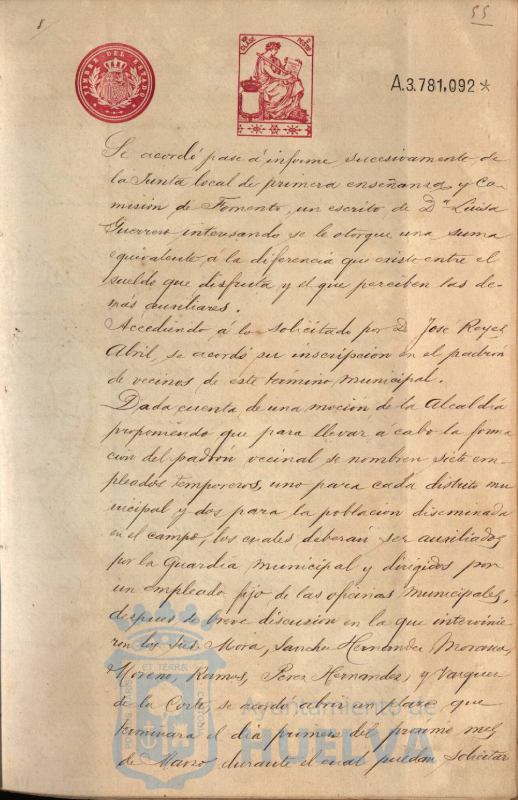 8
55
TIMBRE DEL ESTADO
A.3.781,092*
Se acordó pase á informe sucesivamente de
la Junta local de primera enseñanza y Co-
misión de Fomento, un escrito de Dª Luisa
Guerrero interesando se le otorgue una suma
equivalente á la diferencia que existe entre el
sueldo que disfruta y el que perciben las de-
más auxiliares.
Accediendo á lo solicitado por D. José Reyes
Abril, se acordó su inscripcion en el padrón
de vecinos de este término municipal.
Dada cuenta de una moción de la Alcaldia
proponiendo que para llevar á cabo la forma
cion del padrón vecinal se nombren siete em-
pleados temporeros, uno para cada distrito mu
nicipal y dos para la poblacion diseminada
en el campo, los cuales deberán ser auxiliados
por la Guardia municipal y dirigidos por
un empleado fijo de las oficinas municipales,
despues de breve discusion en la que intervinie
ron los Sres. Mora, Sanchez Hernandez,
Moreno, Ramos, Perez Hernandez, y Vazquez
de la Corte, se acordó abrir un plazo que
terminará el dia primero del próximo mes
de Marzo durante el cual puedan solicitar
Ayuntamiento de
HUELVA